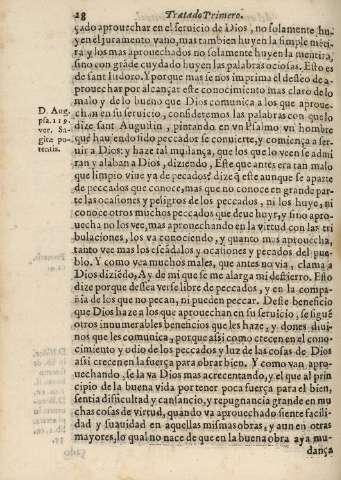 28 Tratado Primero.
çado aprouechar en el seruicio de Dios, no solamente hu-
yen el juramento vano, mas tambien huyen la simple mẽti-
ra y los mas aprouechados no solamente huyen la mentira,
sino con grãde cuydado huyen las palabras ociosas. Esto es
de sant Isidoro. Y porque mas se nos imprima el desseo de a-
prouechar por alcançar este conocimiento mas claro de lo
malo y de lo bueno que Dios comunica a los que aproue-
D. Aug.
psa. 119.
ver. Sa-
gitæ po-
tentis.
chan en su seruicio, consideremos las palabras con que lo
dize sant Augustin, pintando en vn Psalmo vn hombre
que hauiendo sido peccador se conuierte, y comiença a ser-
uir a Dios: y haze tal mudança, que los que lo veen se admi-
ran y alaban a Dios, diziendo, Este que antes era tan malo
que limpio viue ya de pecados? dize q̃ este aunque se aparte
de peccados que conoce, mas que no conoce en grande par-
te las ocasiones y peligros de los peccados, ni los huye, ni
conoce otros muchos peccados que deue huyr, y sino apro-
uecha no los vee, mas aprouechando en la virtud con las tri
bulaciones, los va conociendo, y quanto mas aprouecha,
tanto vee mas los escãdalos y ocasiones y pecados del pue-
blo. Y como vea muchos males, que antes no via, clama a
Dios diziẽdo, Ay de mi que se me alarga mi destierro. Esto
dize porque dessea verse libre de peccados, y en la compa-
ñia de los que no pecan, ni pueden peccar. Deste beneficio
que Dios haze a los que aprouechan en su seruicio, se siguẽ
otros innumerables beneficios que les haze, y dones diui-
nos que les comunica, porque assi como crecen en el cono-
cimiento y odio de los peccados y luz de las cosas de Dios
assi crecen en la fuerça para obrar bien. Y como van apro-
uechando, se la va Dios mas acrecentando, y el que al prin
cipio de la buena vida por tener poca fuerça para el bien,
sentia difficultad y cansancio, y repugnancia grande en mu
chas cosas de virtud, quando va aprouechado siente facili-
dad y suauidad en aquellas mismas obras, y aun en otras
mayores, lo qual no nace de que en la buena obra aya mu-
dança